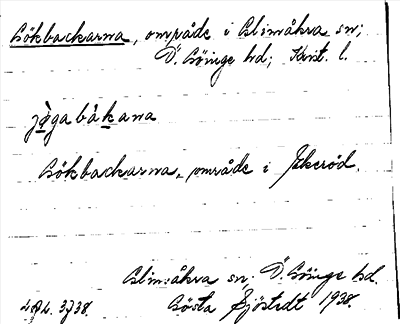 Gökbackarna, område i Glimåkra sn;
Ö. Göinge hd; Krist. l.
jøgabåkana
Gökbackarna, område i Ekeröd.
Glimåkra sn; Ö. Göinge hd.
Gösta Sjöstedt 1938.